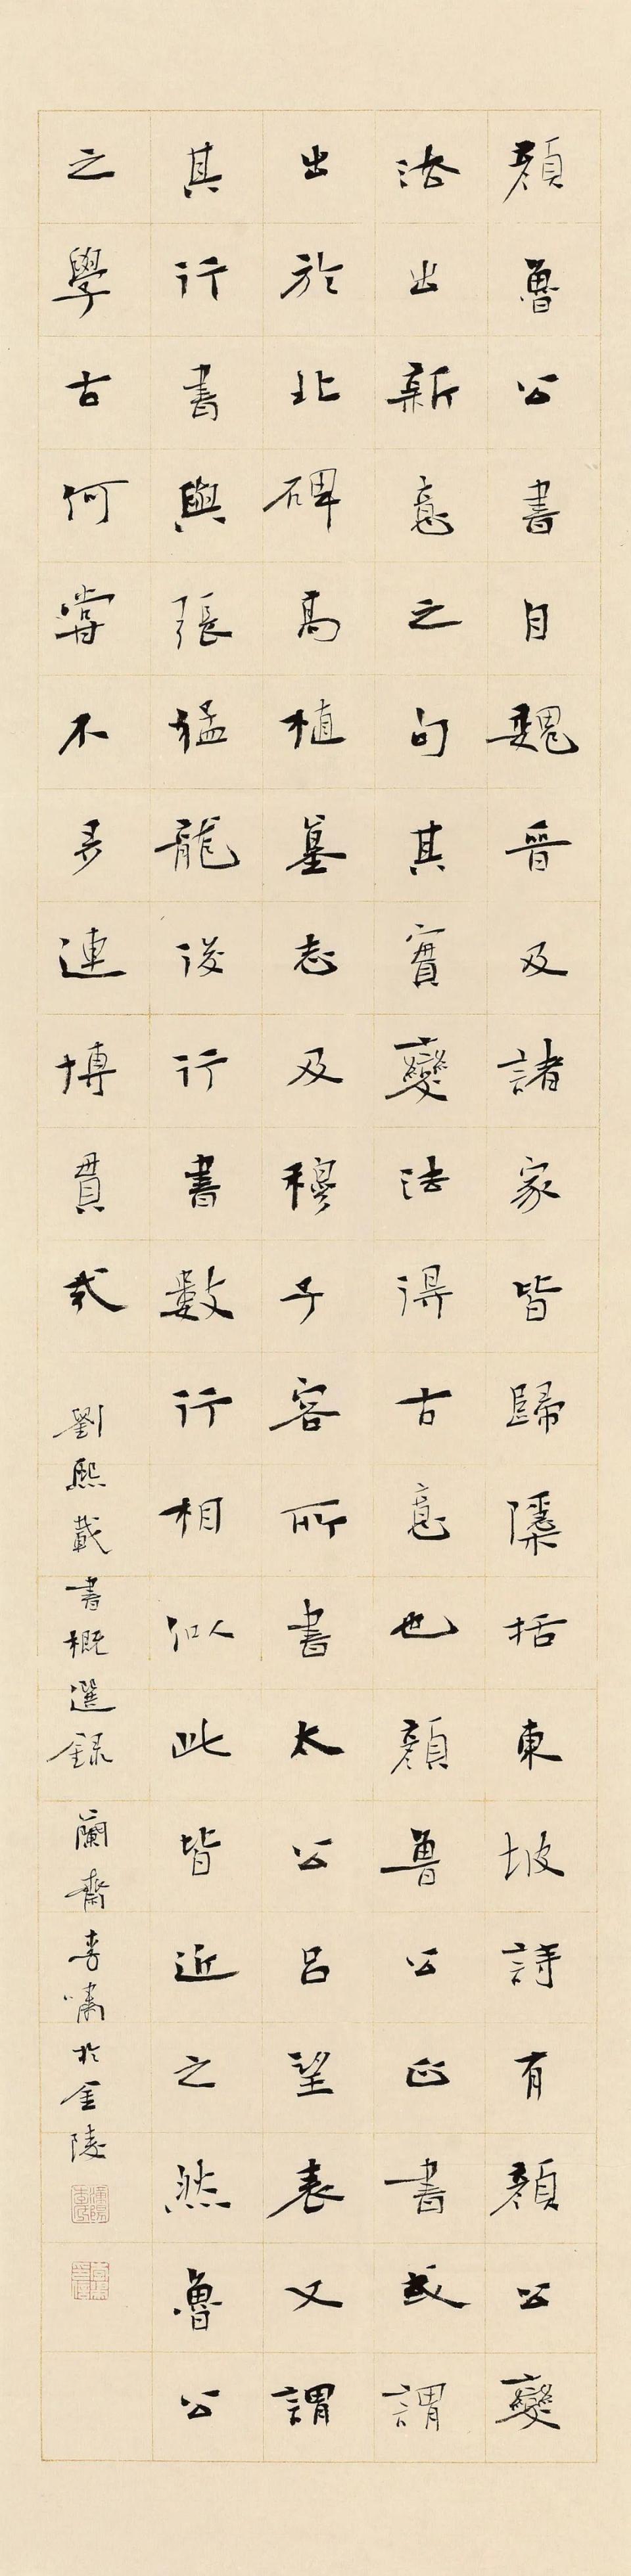 顏魯公書自魏晉及諸家皆歸櫽括東坡詩有顏公變
法出新意之句其實變法得古意也顏魯公正書或謂
出於北碑高植墓志及穆子容所書太公呂望表又謂
其行書與張猛龍後行書數行相似此皆近之然魯公
之學古何嘗不多連博貫哉 劉熙載書概選錄 蘭齋李嘯於金陵